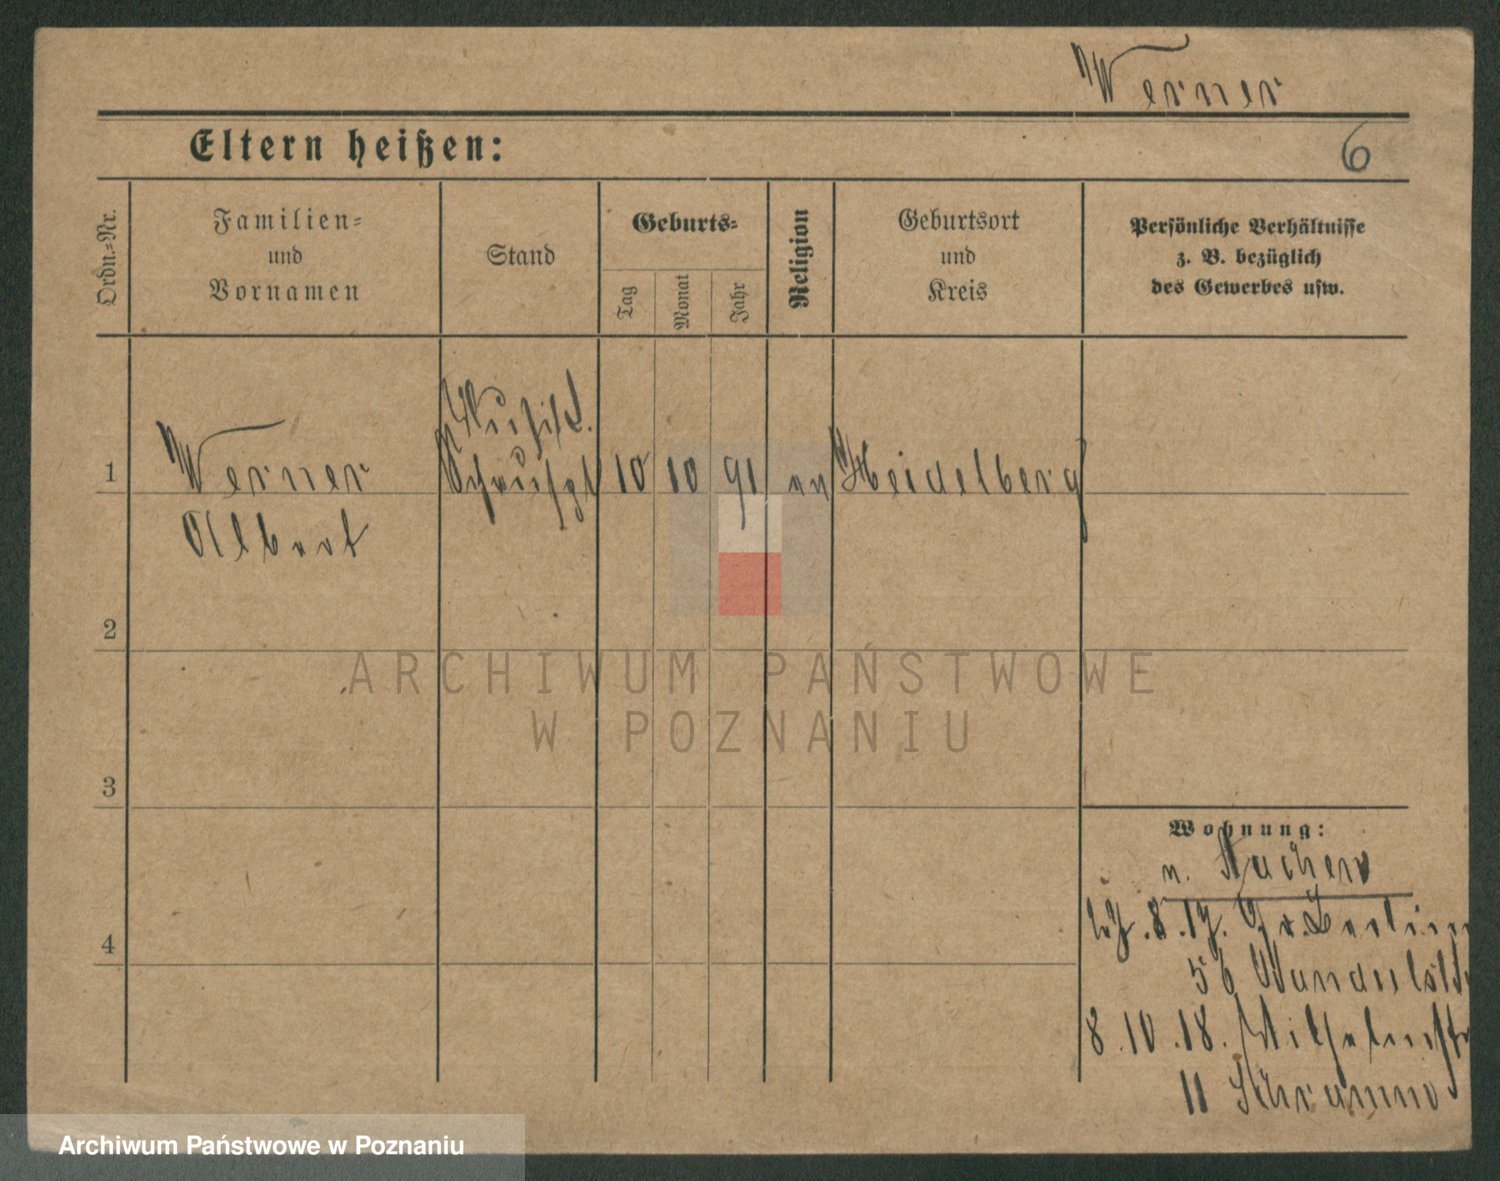 Werner
Eltern heißen:
6
Ordn.=Nr.
Familien=
und
Vornamen
Stand
Geburts=
Tag
Monat
Jahr
Religion
Geburtsort
und
Kreis
Persönliche Verhältnisse
z. B. bezüglich
des Gewerbes usw.
1
Werner
Albert
10
10
91
Heidelberg
2
ARCHIWUM PAŃSTWOWE
W POZNANIU
3
Wohnung:
n. Aachen
8.17. Gr. Berlin
4
56
8.10.18. Wilhelmstr
11 Schramm
Archiwum Państwowe w Poznaniu